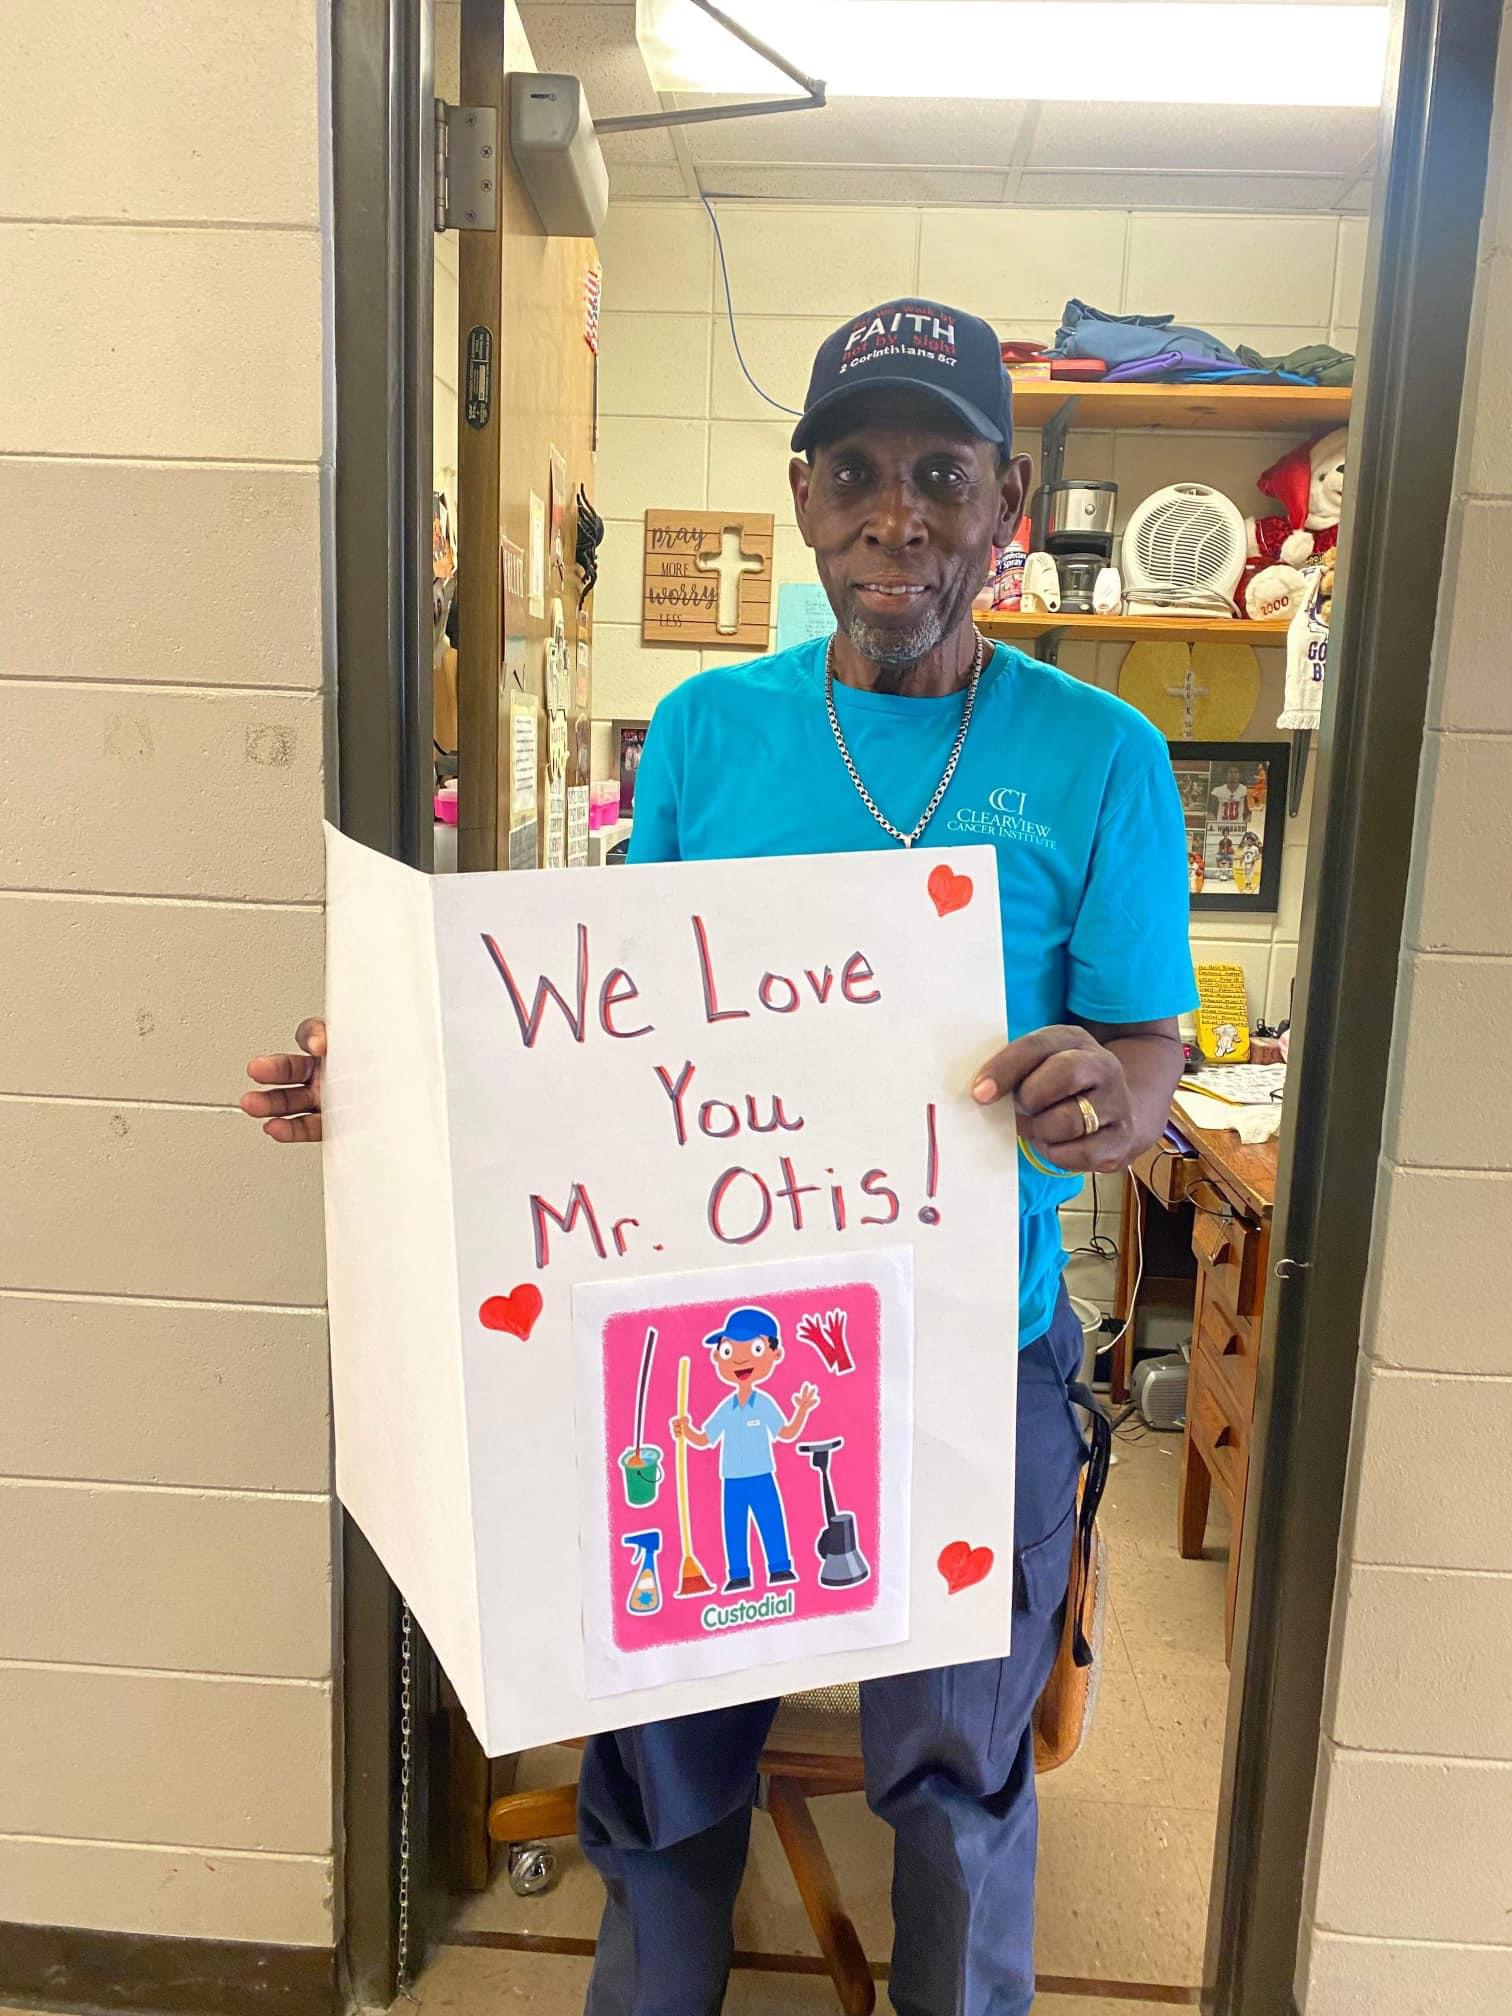 For we walk by
FAITH
not by sight
2 Corinthians 5:7
pray
MORE
worry
LESS
Disinfectant
Spray
2000
GO
B
CCI
CLEARVIEW
CANCER INSTITUTE
10
A. HUBBARD
We Love
You
Mr. Otis!
Custodial